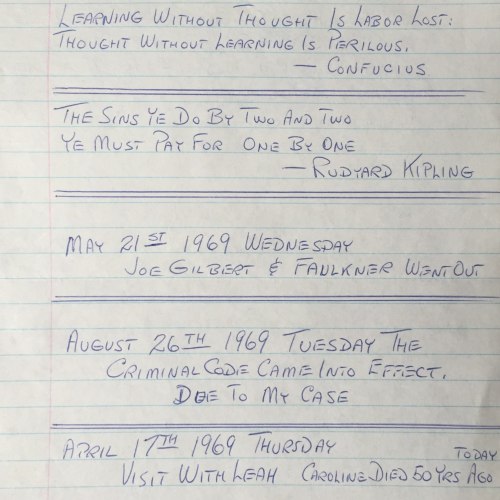 LEARNING WITHOUT THOUGHT IS LABOR LOST:
THOUGHT WITHOUT LEARNING IS PERILOUS.
— CONFUCIUS
THE SINS YE DO BY TWO AND TWO
YE MUST PAY FOR ONE BY ONE
— RUDYARD KIPLING
MAY 21ST 1969 WEDNESDAY
JOE GILBERT & FAULKNER WENT OUT
AUGUST 26TH 1969 TUESDAY THE
CRIMINAL CODE CAME INTO EFFECT.
DUE TO MY CASE
APRIL 17TH 1969 THURSDAY TODAY
VISIT WITH LEAH CAROLINE DIED 50 YRS AGO